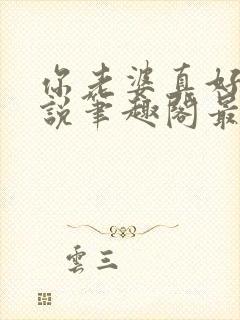 你老婆真好
説筆趣閣最
雲三